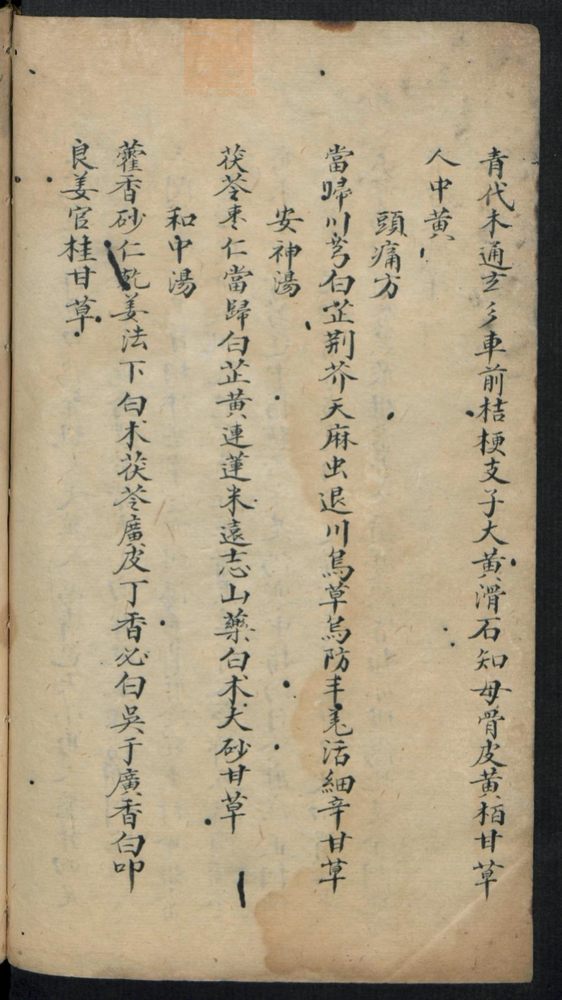 青代木通玄彡車前桔梗支子大黄滑石知母骨皮黄栢甘草
人中黄
頭痛方
當歸川芎白芷荆芥天麻虫退川烏草烏防丰羗活細辛甘草
安神湯
茯苓枣仁當歸白芷黄連蓮米遠志山藥白术夫砂甘草
和中湯
藿香砂仁乾姜法下白术茯苓廣皮丁香必白吳于廣香白叩
良姜官桂甘草